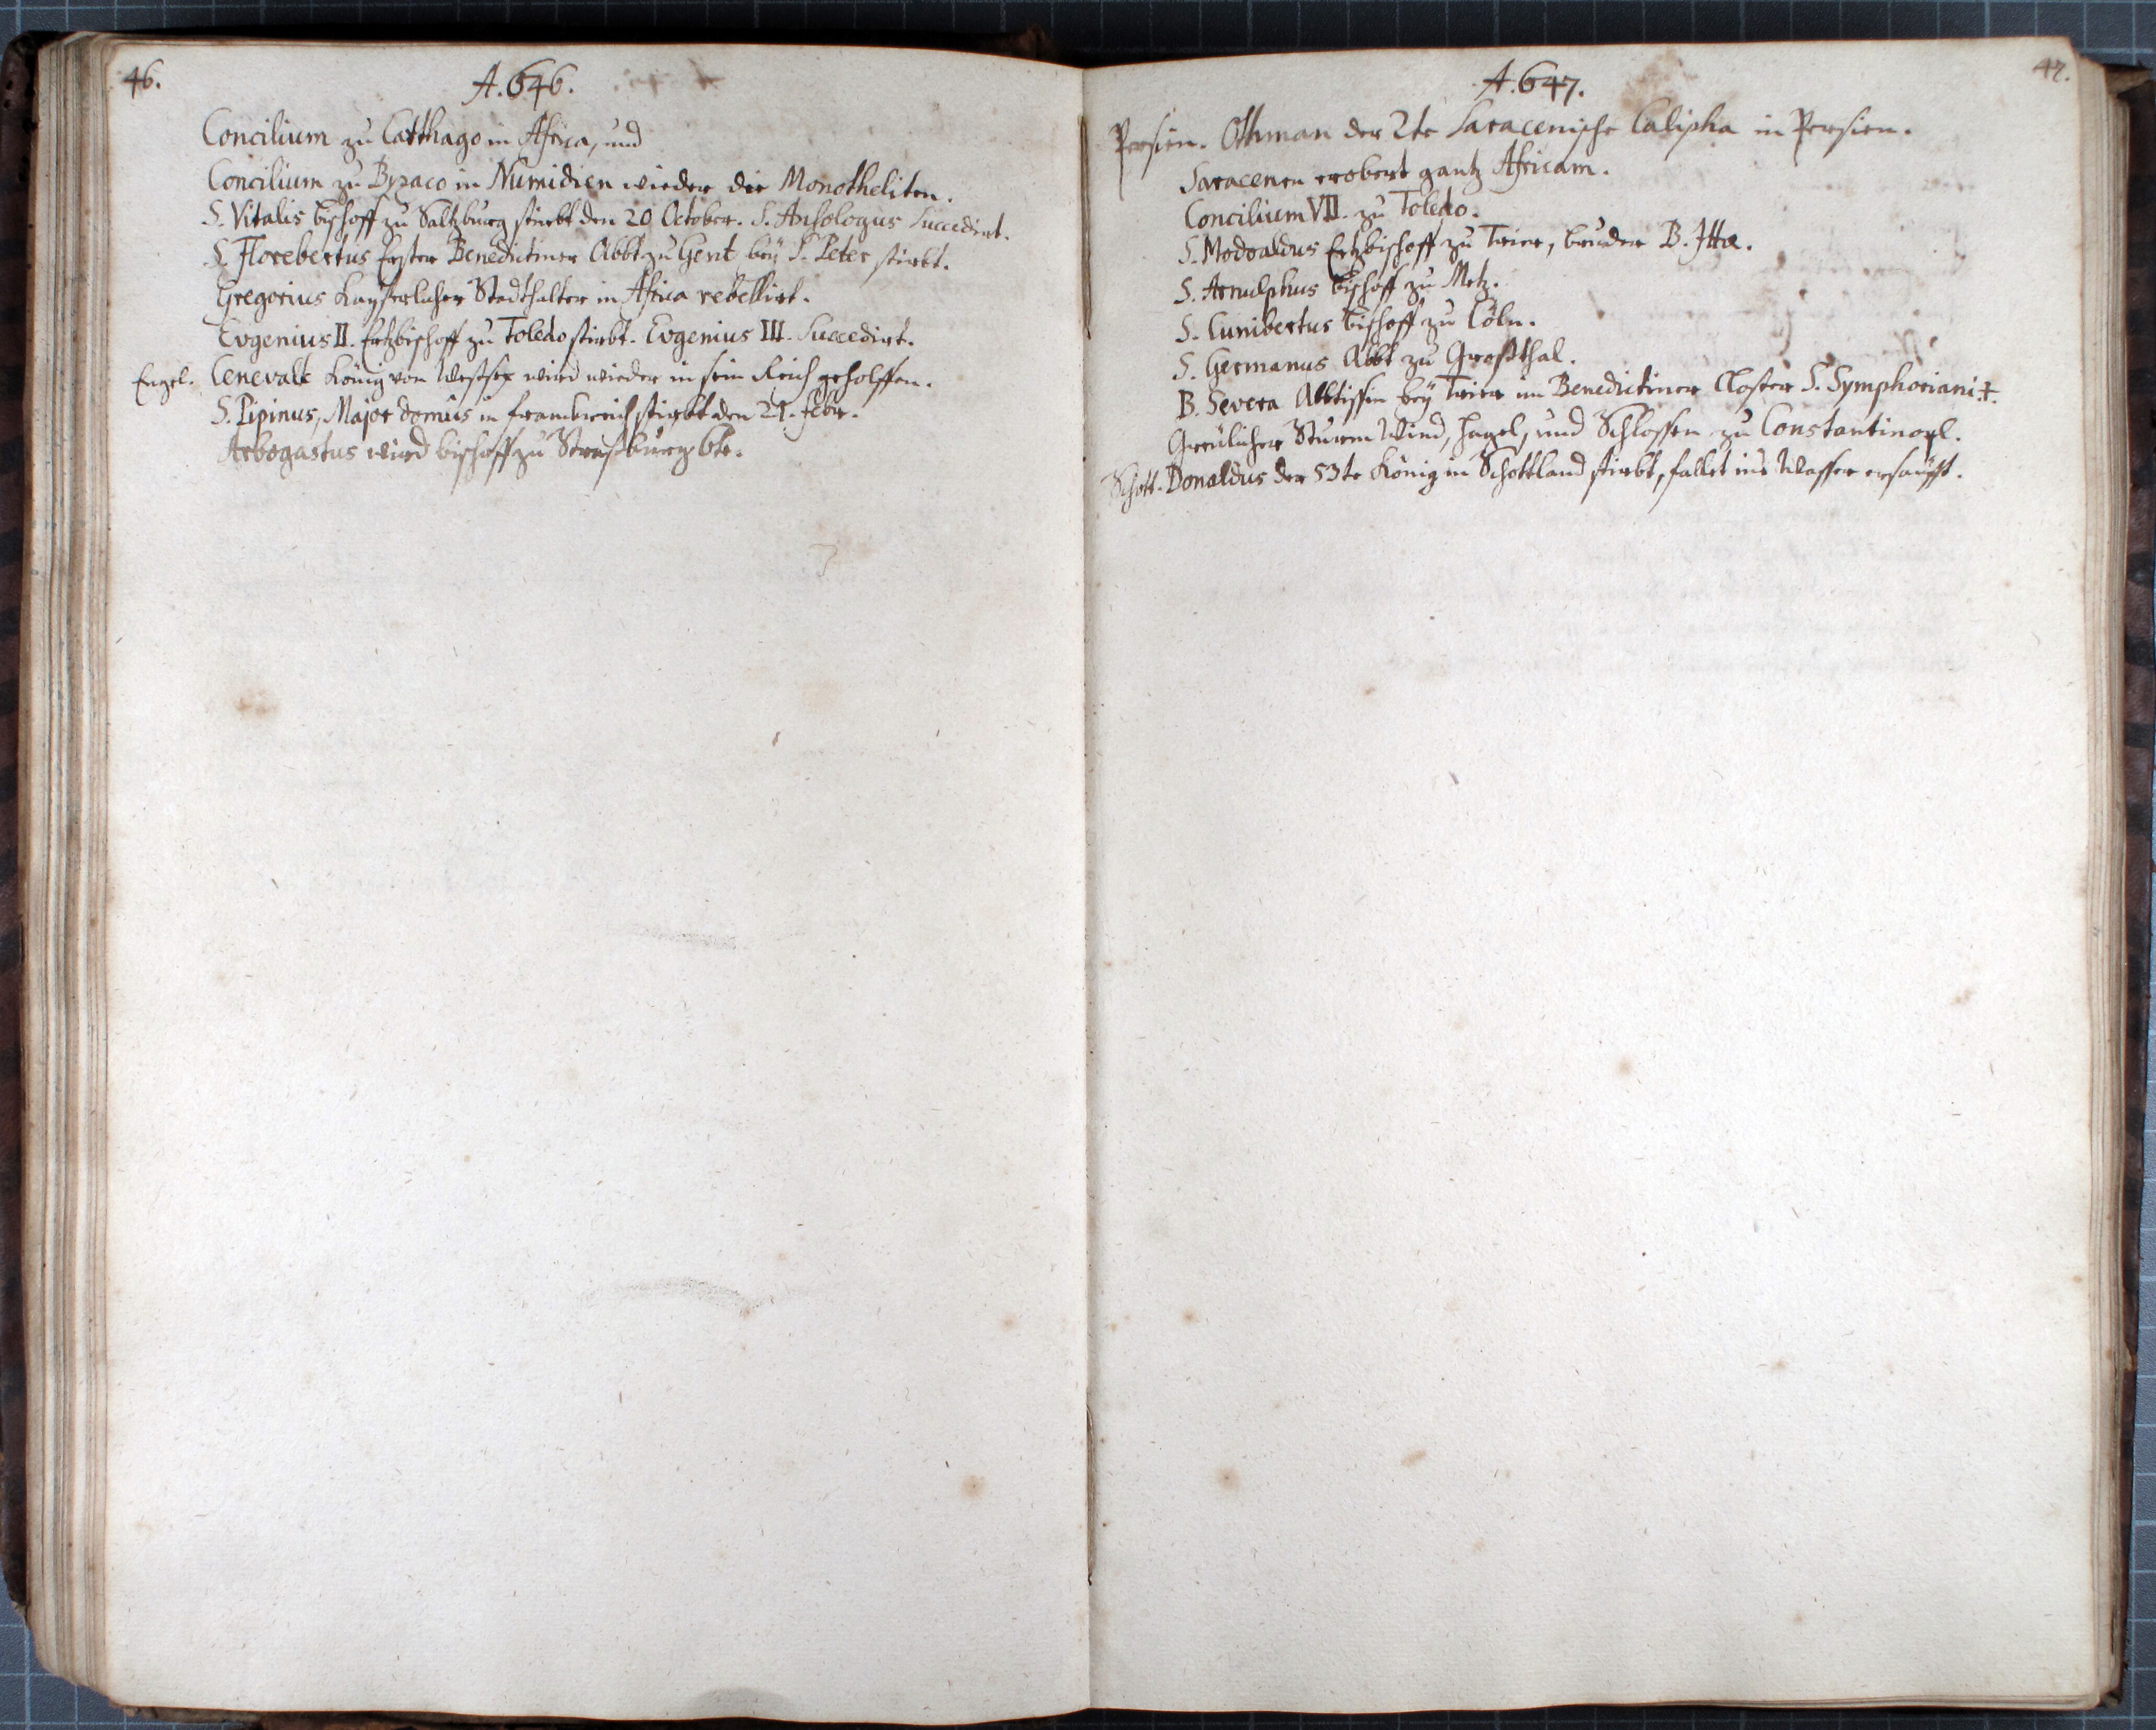 46.
A. 646.
Concilium zu Catthago in Africa, und
Concilium zu Byzaco in Numidien wieder die Monotheliten.
S. Vitalis bischoff zu Saltzburg stirbt den 20 October. S. Ansologus Succedirt.
S. Florebertus Erster Benedictiner Abbt zu Gent bey S. Peter stirbt.
Gregorius Kayserlicher Stadthalter in Africa rebellirt.
Evgenius II. Ertzbischoff zu Toledo stirbt. Evgenius III. Succedirt.
Engel. Cenevalt König von Westsex wird wieder in sein Reich geholffen.
S. Pipinus, Major domus in franckreich stirbt den 21. febr.
Arbogastus wird bischoff zu Straßburg 6te.
47.
A. 647.
Persien. Othman der 2te Saracenische Calipha in Persien.
Saracenen erobert gantz Africam.
Concilium VII. zu Toledo.
S. Modoaldus Ertzbischoff zu Trier, bruder B. Ittæ.
S. Arnulphus bischoff zu Metz.
S. Cunibertus bischoff zu Cöln.
S. Germanus Abbt zu Großthal.
B. Severa Abbtissin bey Trier im Benedictiner Closter S. Symphoriani †.
Greulicher Sturm Wind, hagel, und Schlossen zu Constantinopl.
Schott. Donaldus der 53te König in Schottland stirbt, fallet ins Wasser ersaüfft.